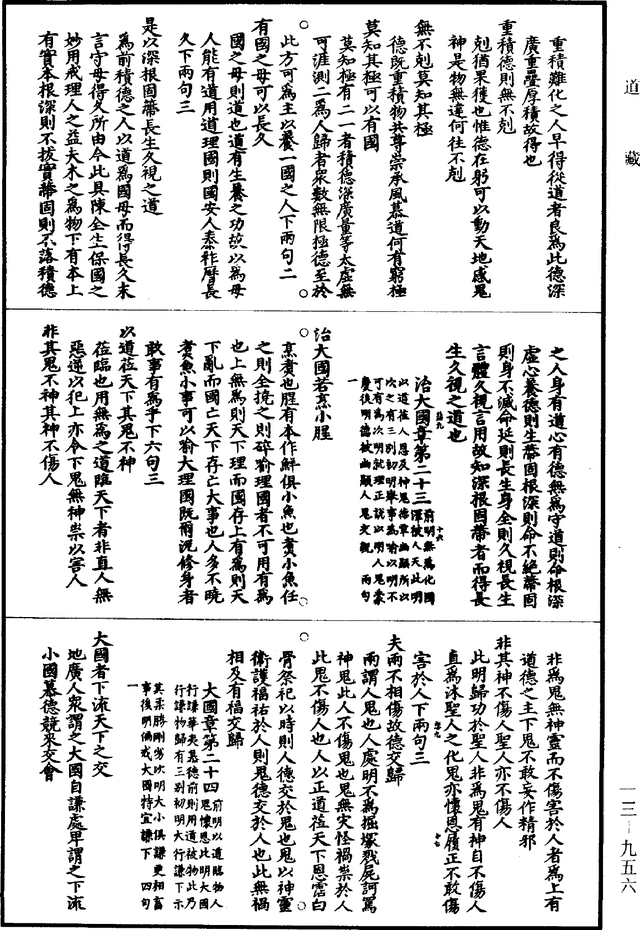 道藏
重積難化之人早得從道者良為此德深
廣重疊厚積故得也
重積德則無不剋
剋猶果獲也惟德在躬可以動天地感鬼
神是物無違何往不剋
無不剋莫知其極
德既重積物共尊崇承風慕道何有窮極
莫知其極可以有國
莫知極有二一者積德深廣量等太虛無
可涯測二為人歸者衆數無限極德至於
此方可為主以養一國之人下兩句二
有國之母可以長久
國之母則道也道有生養之功故以為母
人能有道用道理國則國安人泰祚曆長
久下兩句三
是以深根固蔕長生久視之道
為前積德之人以道為國母而得長久未
言守母得久所由今此具陳全生保國之
妙用戒理人之益夫木之為物下有本上
有實本根深則不拔實蔕固則不落積德
之人身有道心有德無為守道則命根深
虛心養德則生蔕固根深則命不絕蔕固
則身不滅命延則長生身全則久視長生
言體久視言用故知深根固蔕者而得長
生久視之道也
治大國章第二十三
前明無為化國澤被人天此明
以道莅人恩及神鬼德覃幽顯所以
次之有三别初明舉事為喻以明不
可有為次明就理正說以明人鬼蒙
慶後明德被幽顯人鬼交觀 兩句
一
治大國若烹小腥
烹煑也腥有本作鮮俱小魚也煑小魚任
之則全撓之則碎喻理國者不可用有為
也上無為則天下理而國存上有為則天
下亂而國亡天下存亡大事也人多不曉
煑魚小事可以喻大理國既爾況修身者
敢事有為乎下六句三
以道莅天下其鬼不神
莅臨也用無為之道臨天下者非直人無
惡逆以犯上亦令下鬼無神祟以害人
非其鬼不神其神不傷人
非為鬼無神靈而不傷害於人者為上有
道德之主下鬼不敢妄作精邪
非其神不傷人聖人亦不傷人
此明歸功於聖人非為鬼有神自不傷人
直為沐聖人之化鬼亦懷恩履正不敢傷
害於人下兩句三
夫兩不相傷故德交歸
兩謂人鬼也人處明不為掘塚戮屍訶罵
神鬼此人不傷鬼也鬼無灾怪禍祟於人
此鬼不傷人也人以正道莅天下恩霑白
骨祭祀以時則人德交於鬼也鬼以神靈
衛護福祐於人則鬼德交於人也此無禍
相及有福交歸
大國章第二十四
前明以道臨物人鬼懷恩此明大國
行謙華夷慕德前則用道被物此乃
行謙物歸有三别初明大行謙下示
其柔勝剛劣次明大小俱謙更相畜
事後明偏戒大國特宜謙下 四句
一
大國者下流天下之交
地廣人衆謂之大國自謙處卑謂之下流
小國慕德競來交會
一三—九五六